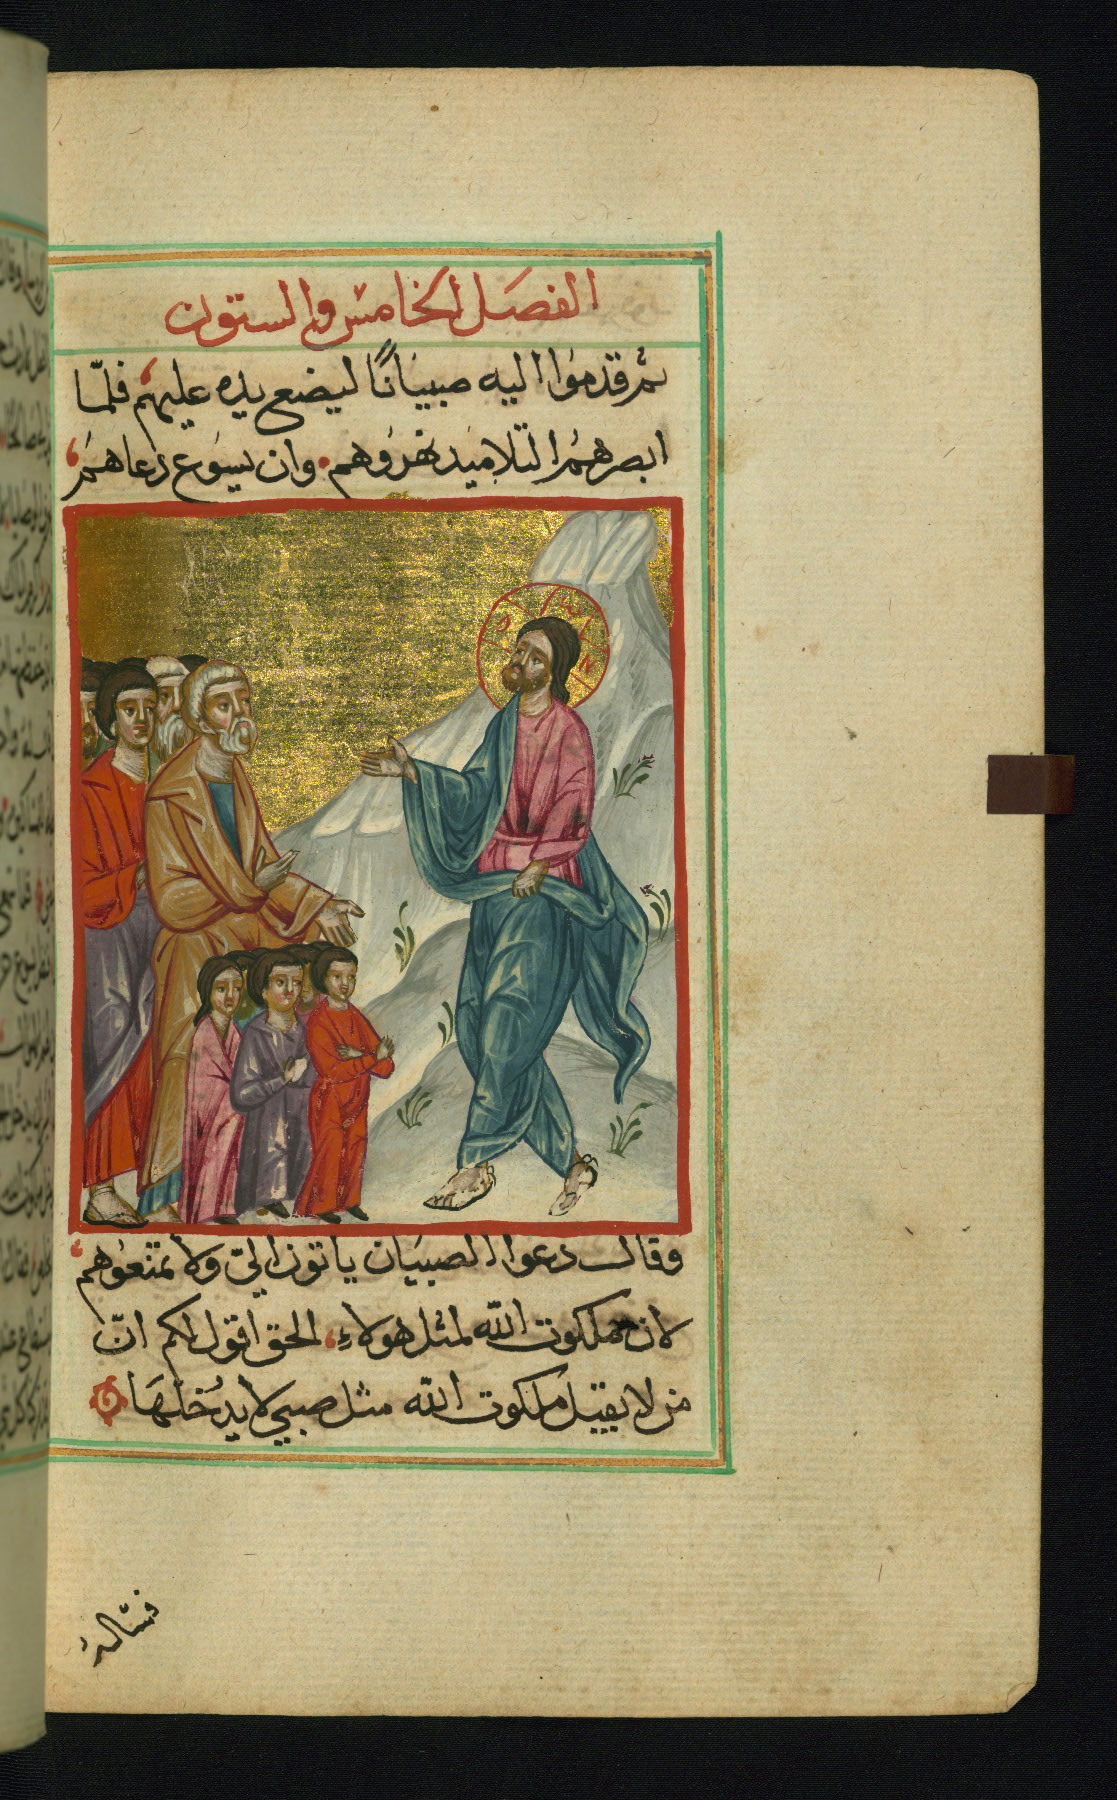 الفصل الخامس والستون
ثم قدموا اليه صبيانًا ليضع يده عليهم فلمّا
ابصرهم التلاميذ نهروهم وان يسوع دعاهم
ὁ ὢ Ν
وقال دعوا الصبيان ياتون اليّ ولا تمنعوهم
لان ملكوت الله لمثل هولاءِ الحق اقول لكم انّ
من لا يقبل ملكوت الله مثل صبي لا يدخلها
فساله